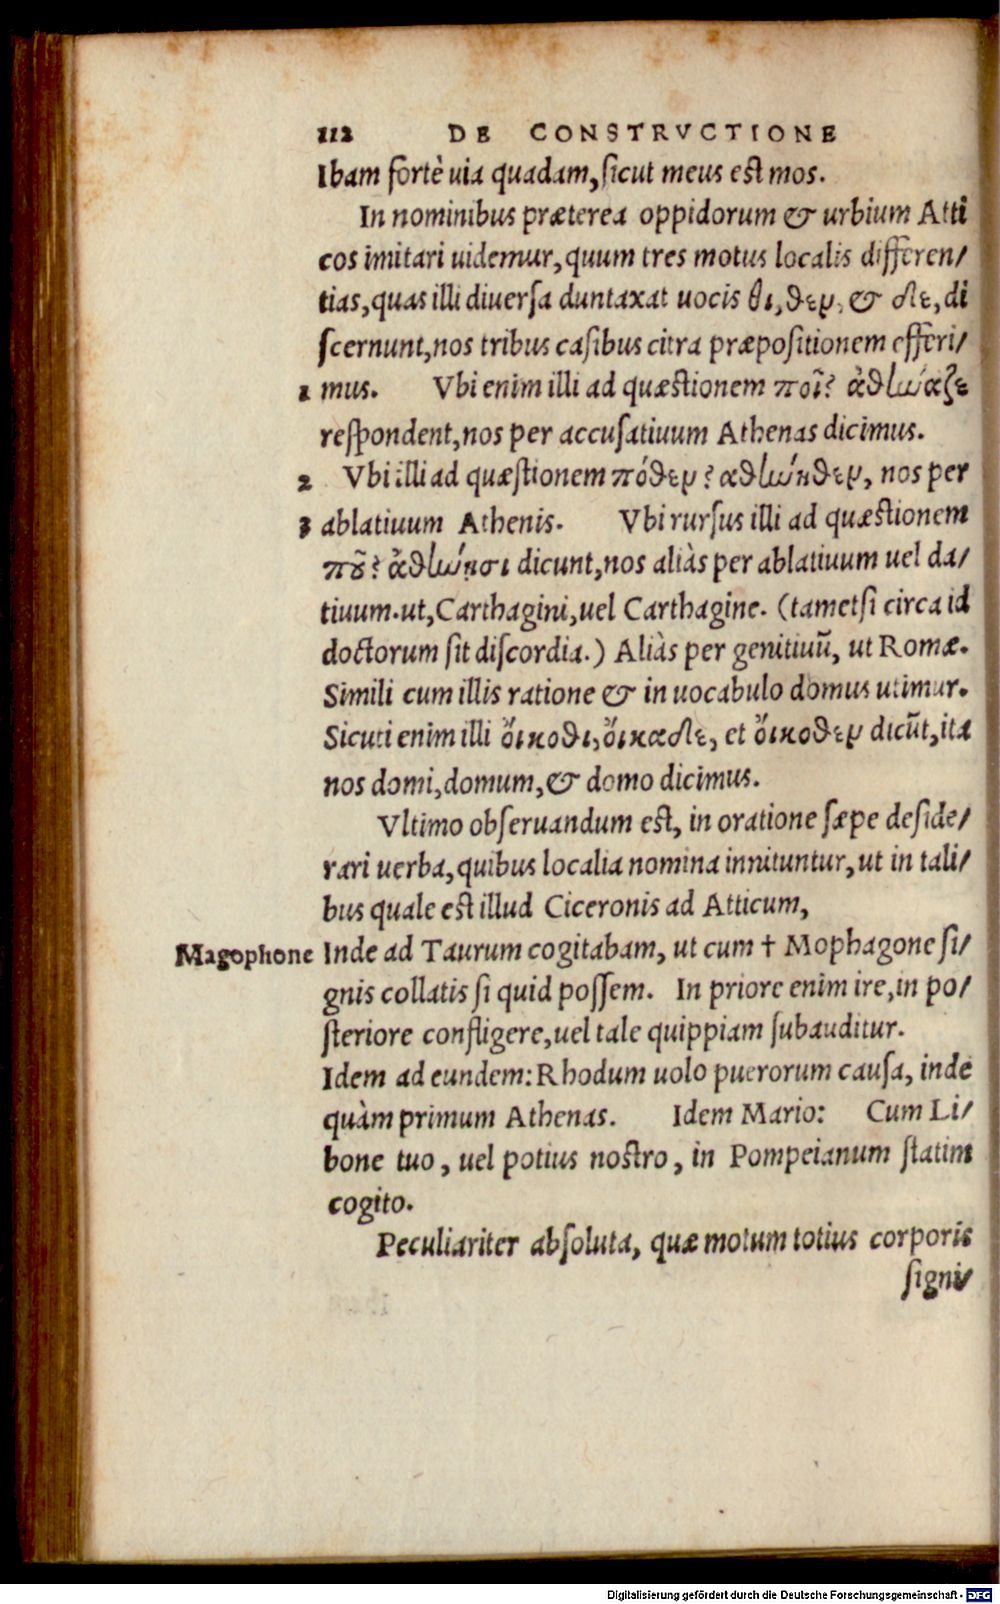 112 DE CONSTRVCTIONE
Ibam fortè uia quadam, sicut meus est mos.
In nominibus præterea oppidorum & urbium Atti
cos imitari uidemur, quum tres motus localis differen/
tias, quas illi diuersa duntaxat uocis θι, θεν, & δε, di
scernunt, nos tribus casibus citra præpositionem efferi/
1 mus. Vbi enim illi ad quæstionem ποῖ? ἀθlώαζε
respondent, nos per accusatiuum Athenas dicimus.
2 Vbi illi ad quæstionem πόθεν? ἀθlώηθεν, nos per
3 ablatiuum Athenis. Vbi rursus illi ad quæstionem
ποῦ? ἀθlώησι dicunt, nos aliàs per ablatiuum uel da/
tiuum. ut, Carthagini, uel Carthagine. (tametsi circa id
doctorum sit discordia.) Aliàs per genitiuū, ut Romæ.
Simili cum illis ratione & in uocabulo domus utimur.
Sicuti enim illi ὄικοθι, ὄικαδε, et ὄικοθεν dicūt, ita
nos domi, domum, & domo dicimus.
Vltimo obseruandum est, in oratione sæpe deside/
rari uerba, quibus localia nomina innituntur, ut in tali/
bus quale est illud Ciceronis ad Atticum,
Magophone Inde ad Taurum cogitabam, ut cum † Mophagone si/
gnis collatis si quid possem. In priore enim ire, in po/
steriore confligere, uel tale quippiam subauditur.
Idem ad eundem: Rhodum uolo puerorum causa, inde
quàm primum Athenas. Idem Mario: Cum Li/
bone tuo, uel potius nostro, in Pompeianum statim
cogito.
Peculiariter absoluta, quæ motum totius corporis
signi/
Digitalisierung gefördert durch die Deutsche Forschungsgemeinschaft - DFG